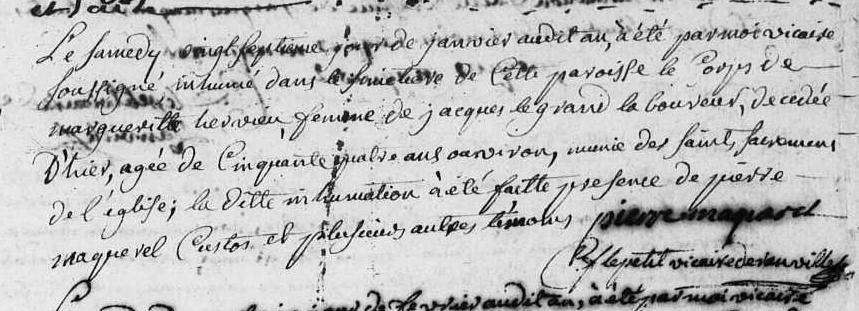 Le samedy vingt septieme jour de janvier audit an, à été par moi vicaire
soussigné inhumé dans le simetiere de Cette paroisse le Corps de
margueritte hervieu, femme de jacques le grand laboureur, decedée
D'hier, agée de Cinquante quatre ans ou environ, munie des saints sacremens
de l'église; la ditte inhumation à été faitte presence de pierre
maquerel Custos et plusieurs autres témoins pierre maquerel
le petit vicaire de
de fevrier audit an, à été par moi vicaire